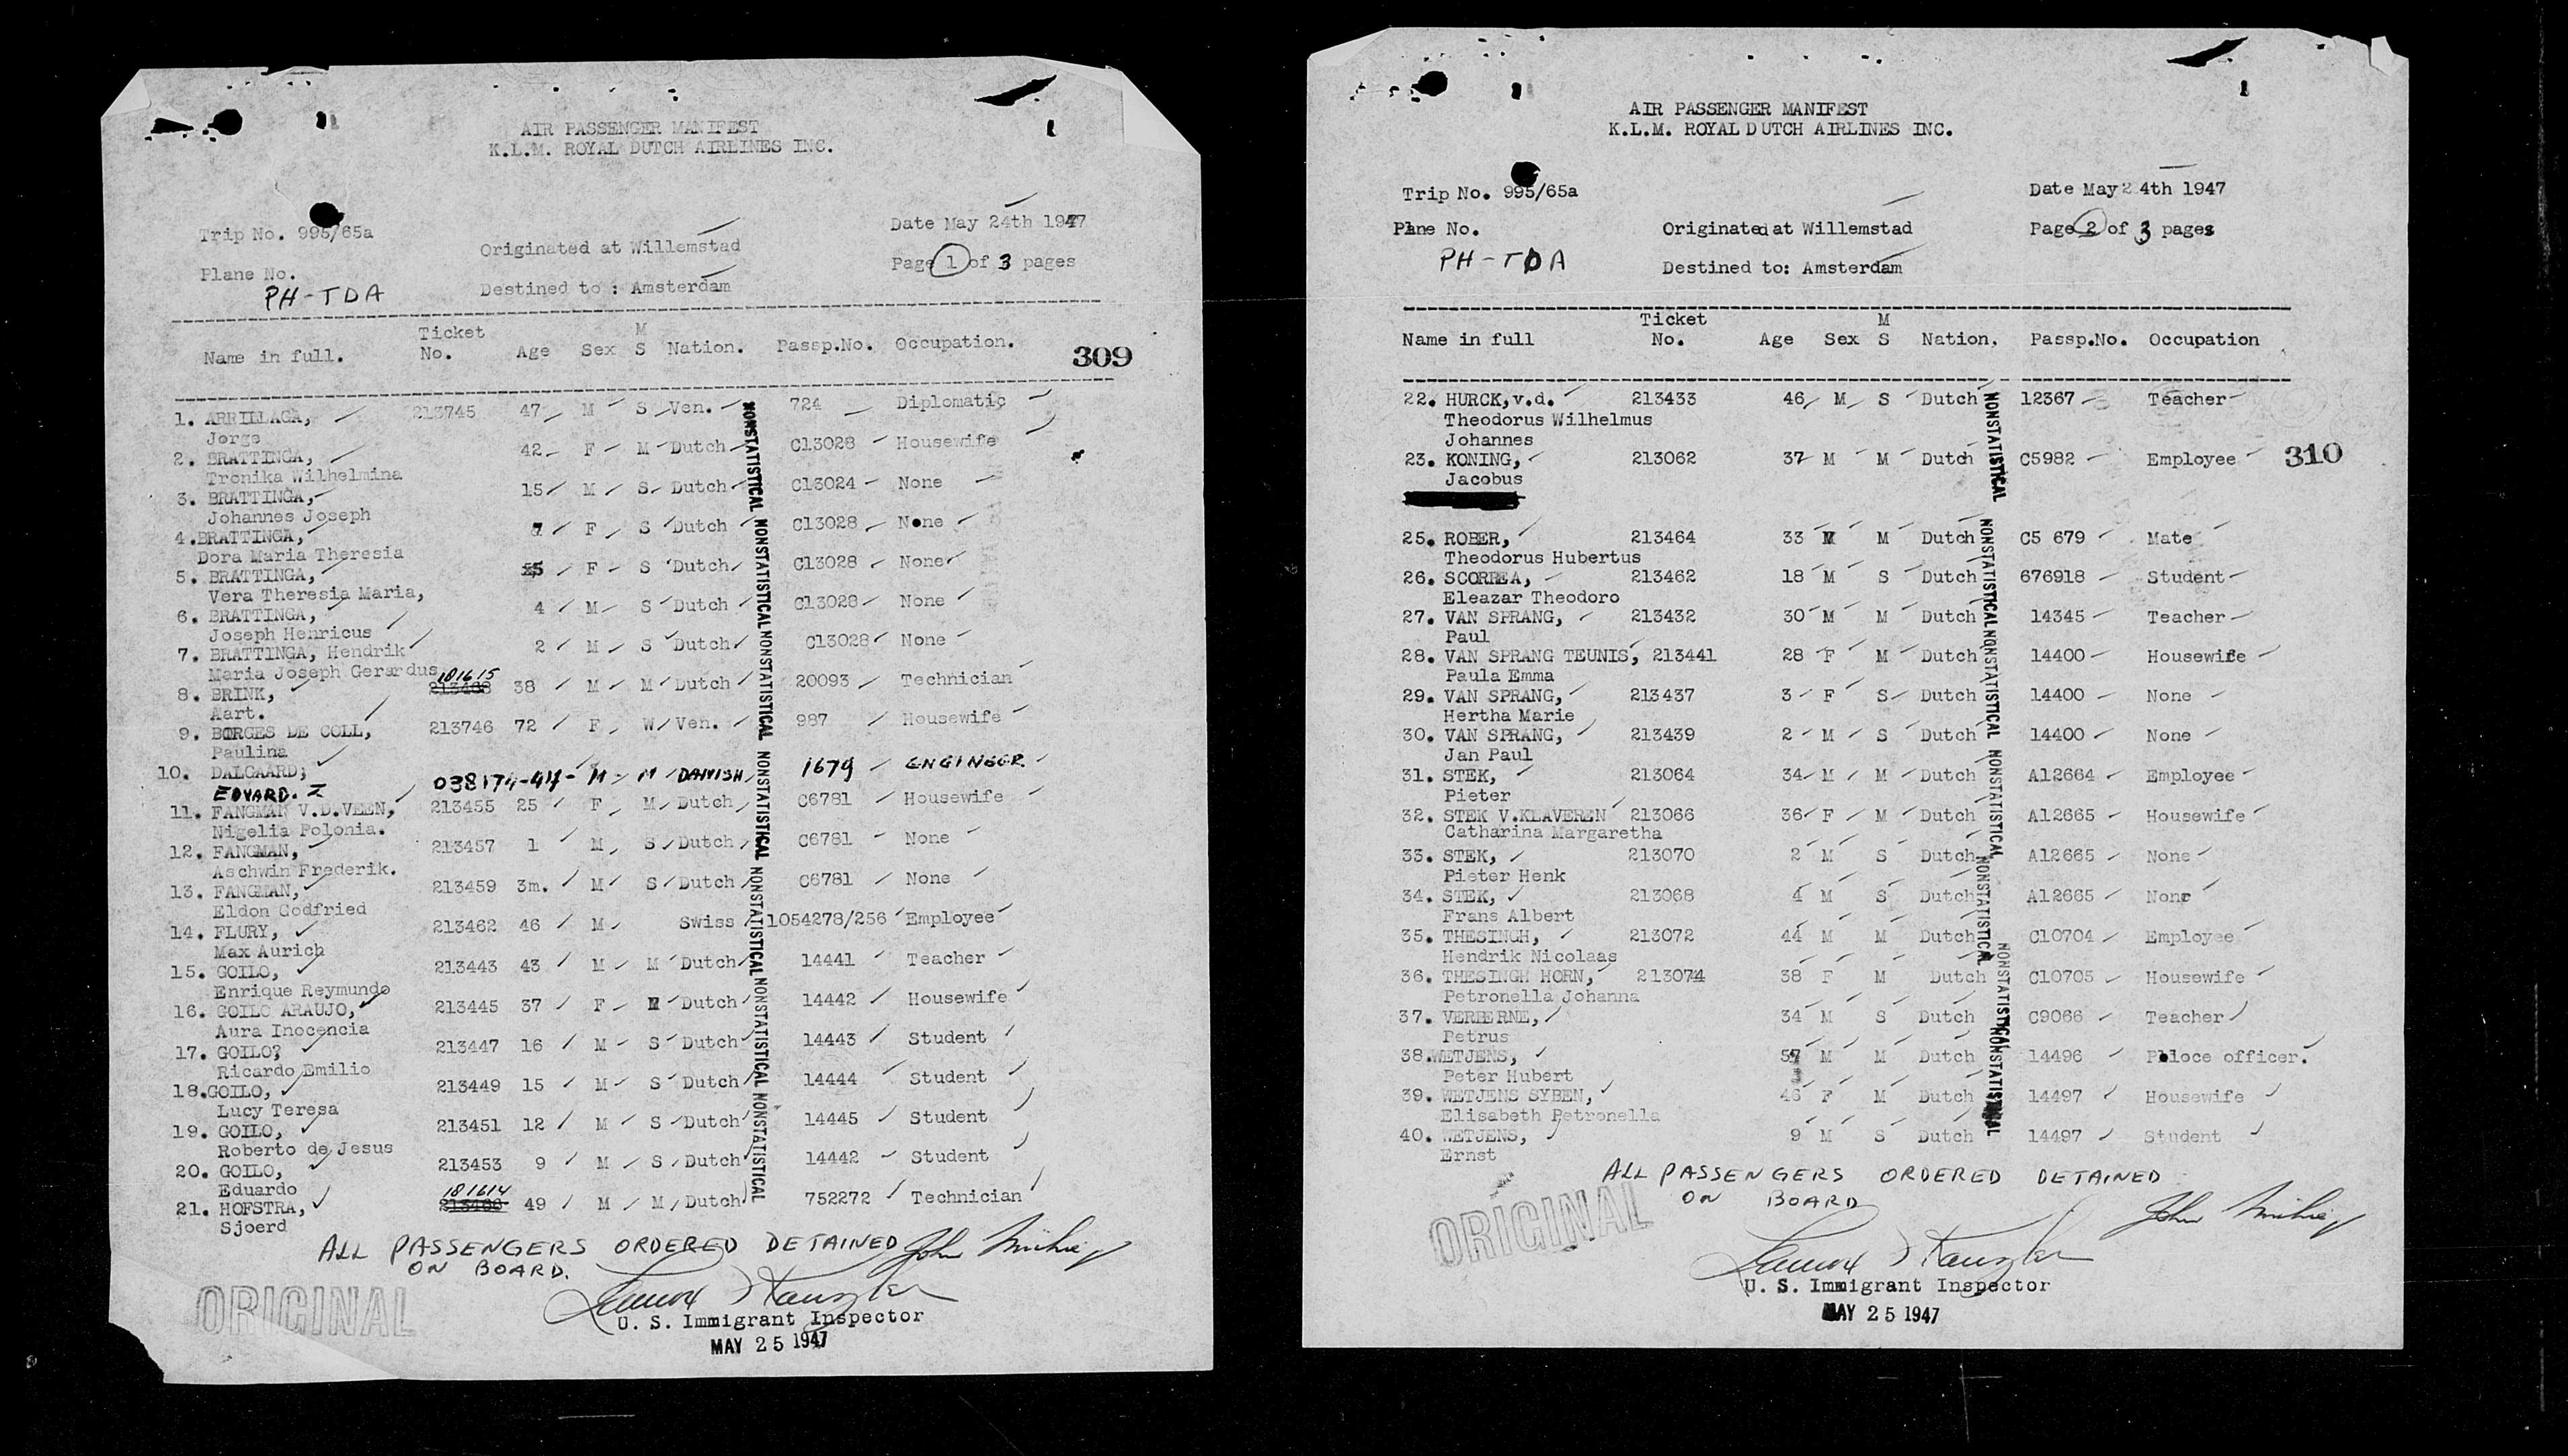 AIR PASSENGER MANIFEST
K.L.M. ROYAL DUTCH AIRLINES INC.
Trip No. 995/65a
Originated at Willemstad
Date May 24th 1947
Plane No.
PH-TDA
Destined to : Amsterdam
Page 1 of 3 pages
Name in full. Ticket No. Age Sex M S Nation. Passp.No. Occupation.
309
1. ARRILLAGA, 213745 47 M S Ven. 724 Diplomatic
Jorge
2. BRATTINGA, 42 F M Dutch C13028 Housewife
Tronika Wilhelmina
3. BRATTINGA, 15 M S Dutch C13024 None
Johannes Joseph
4.BRATTINGA, 7 F S Dutch C13028 None
Dora Maria Theresia
5. BRATTINGA, 5 F S Dutch C13028 None
Vera Theresia Maria,
6. BRATTINGA, 4 M S Dutch C13028 None
Joseph Henricus
7. BRATTINGA, Hendrik 2 M S Dutch C13028 None
Maria Joseph Gerardus
181615
8. BRINK, 38 M M Dutch 20093 Technician
Aart.
9. BORGES DE COLL, 213746 72 F W Ven. 987 Housewife
Paulina
10. DALGAARD; 038174-44- M M DANISH 1679 ENGINEER
EDVARD. I
11. FANGMAN V.D.VEEN, 213455 25 F M Dutch C6781 Housewife
Nigelia Polonia.
12. FANGMAN, 213457 1 M S Dutch C6781 None
Aschwin Frederik.
13. FANGMAN, 213459 3m. M S Dutch C6781 None
Eldon Godfried
14. FLURY, 213462 46 M Swiss 1054278/256 Employee
Max Aurich
15. GOILO, 213443 43 M M Dutch 14441 Teacher
Enrique Reymundo
16. GOILO ARAUJO, 213445 37 F M Dutch 14442 Housewife
Aura Inocencia
17. GOILO? 213447 16 M S Dutch 14443 Student
Ricardo Emilio
18.GOILO, 213449 15 M S Dutch 14444 Student
Lucy Teresa
19. GOILO, 213451 12 M S Dutch 14445 Student
Roberto de Jesus
20. GOILO, 213453 9 M S Dutch 14442 Student
Eduardo
181614
21. HOFSTRA, 49 M M Dutch 752272 Technician
Sjoerd
NONSTATISTICAL NONSTATISTICAL NONSTATISTICAL NONSTATISTICAL NONSTATISTICAL NONSTATISTICAL NONSTATISTICAL
ALL PASSENGERS ORDERED DETAINED
ON BOARD.
ORIGINAL
U. S. Immigrant Inspector
MAY 25 1947
AIR PASSENGER MANIFEST
K.L.M. ROYAL DUTCH AIRLINES INC.
Trip No. 995/65a
Date May 24th 1947
Plane No.
Originated at Willemstad
Page 2 of 3 pages
PH-TDA
Destined to: Amsterdam
Name in full Ticket No. Age Sex M S Nation. Passp.No. Occupation
22. HURCK,v.d. 213433 46 M S Dutch 12367 Teacher
Theodorus Wilhelmus
Johannes
23. KONING, 213062 37 M M Dutch C5982 Employee
310
Jacobus
25. ROBER, 213464 33 M M Dutch C5 679 Mate
Theodorus Hubertus
26. SCORREA, 213462 18 M S Dutch 676918 Student
Eleazar Theodoro
27. VAN SPRANG, 213432 30 M M Dutch 14345 Teacher
Paul
28. VAN SPRANG TEUNIS, 213441 28 F M Dutch 14400 Housewife
Paula Emma
29. VAN SPRANG, 213437 3 F S Dutch 14400 None
Hertha Marie
30. VAN SPRANG, 213439 2 M S Dutch 14400 None
Jan Paul
31. STEK, 213064 34 M M Dutch A12664 Employee
Pieter
32. STEK V.KLAVEREN 213066 36 F M Dutch A12665 Housewife
Catharina Margaretha
33. STEK, 213070 2 M S Dutch A12665 None
Pieter Henk
34. STEK, 213068 4 M S Dutch A12665 None
Frans Albert
35. THESINGH, 213072 44 M M Dutch C10704 Employee
Hendrik Nicolaas
36. THESINGH HORN, 213074 38 F M Dutch C10705 Housewife
Petronella Johanna
37. VERBERNE, 34 M S Dutch C9066 Teacher
Petrus
38.WETJENS, 57 M M Dutch 14496 Poloce officer.
Peter Hubert
39. WETJENS SYBEN, 46 F M Dutch 14497 Housewife
Elisabeth Petronella
40. WETJENS, 9 M S Dutch 14497 Student
Ernst
NONSTATISTICAL NONSTATISTICAL NONSTATISTICAL NONSTATISTICAL NONSTATISTICAL NONSTATISTICAL NONSTATISTICAL
ALL PASSENGERS ORDERED DETAINED
ON BOARD
ORIGINAL
U. S. Immigrant Inspector
MAY 25 1947